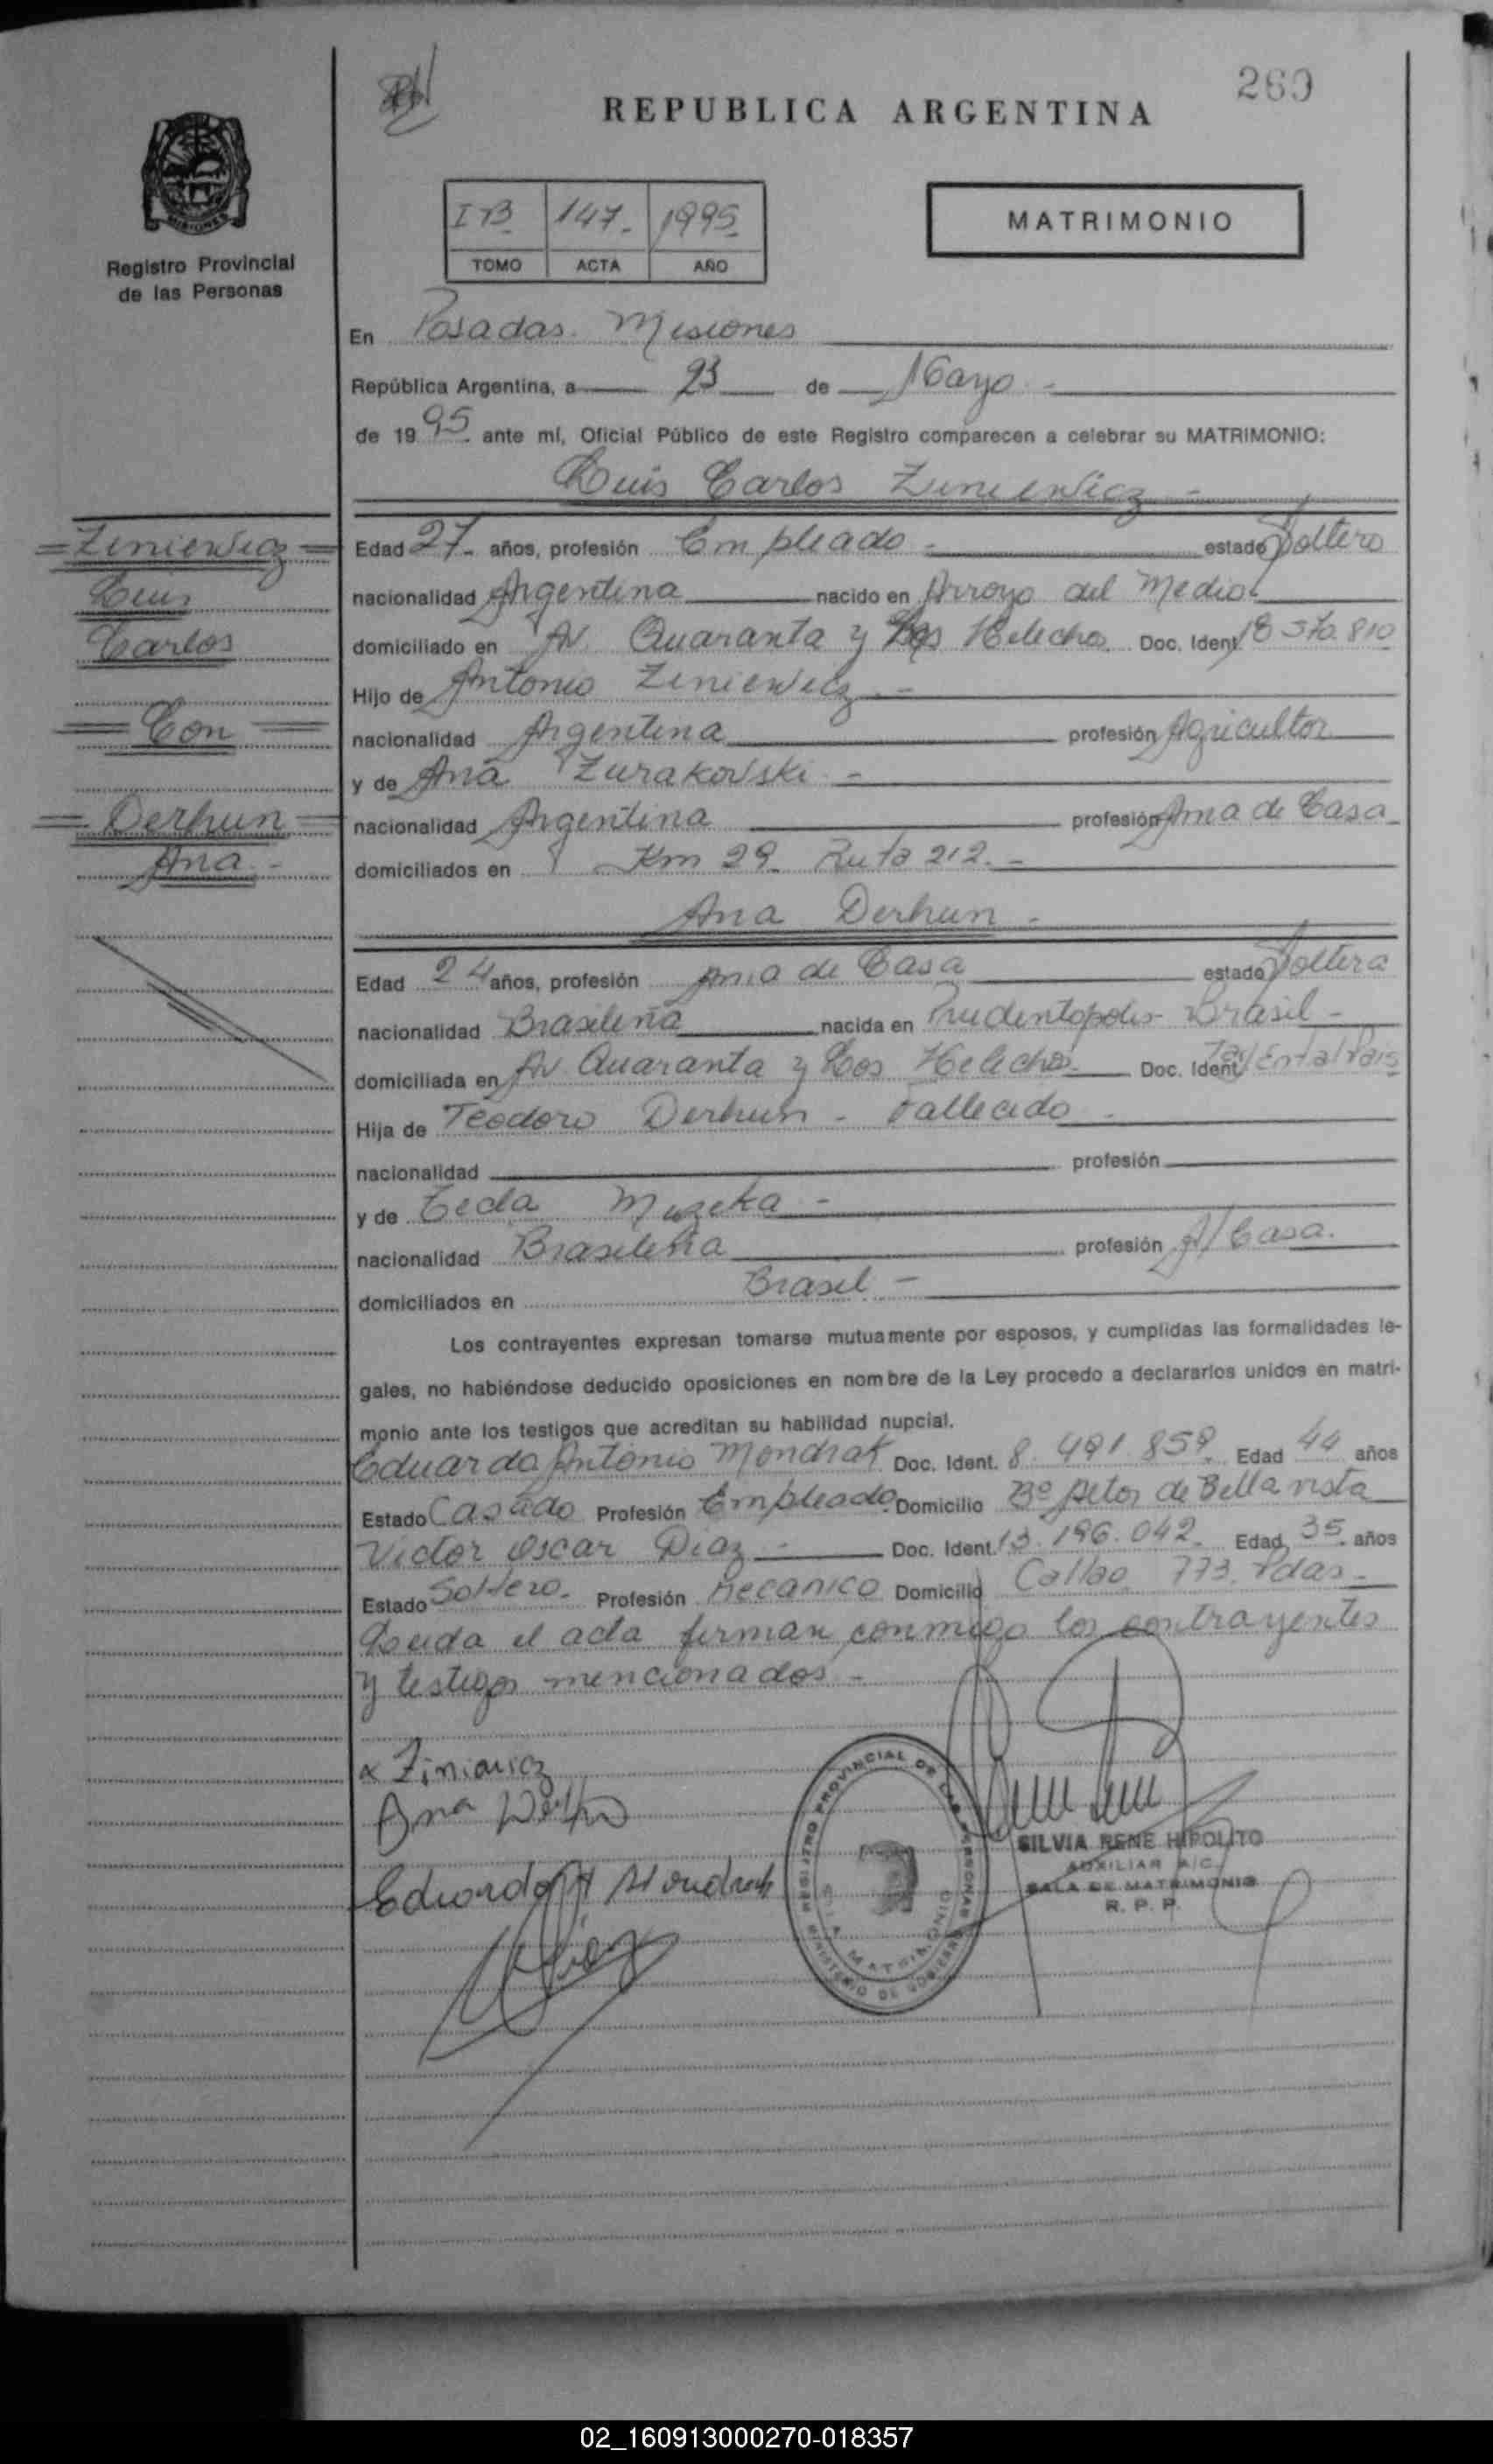 260
REPUBLICA ARGENTINA
MISIONES
Registro Provincial
de las Personas
I B 147- 1995
TOMO ACTA AÑO
MATRIMONIO
En Posadas. Misiones
República Argentina, a 23 de Mayo -
de 1995 ante mí, Oficial Público de este Registro comparecen a celebrar su MATRIMONIO:
Luis Carlos Ziniewicz -
Ziniewicz
Luis
Carlos
Con
Derhun
Ana -
Edad 27- años, profesión Empleado - estado Soltero
nacionalidad Argentina nacido en Arroyo del Medio
domiciliado en Av. Quaranta y Los Helechos Doc. Ident. 18.570.810
Hijo de Antonio Ziniewicz -
nacionalidad Argentina profesión Agricultor
y de Ana Zurakovski -
nacionalidad Argentina profesión Ama de Casa
domiciliados en Km 29 Ruta 212. -
Ana Derhun -
Edad 24 años, profesión Ama de Casa estado Soltera
nacionalidad Brasileña nacida en Prudentopolis - Brasil -
domiciliada en Av Quaranta y Los Helechos Doc. Ident
Hija de Teodoro Derhun - Fallecido -
nacionalidad profesión
y de Tecla Muzeka -
nacionalidad Brasileña profesión A/ Casa.
domiciliados en Brasil -
Los contrayentes expresan tomarse mutuamente por esposos, y cumplidas las formalidades le-
gales, no habiéndose deducido oposiciones en nombre de la Ley procedo a declararlos unidos en matri-
monio ante los testigos que acreditan su habilidad nupcial.
Eduardo Antonio Mondrak Doc. Ident. 8.491.859 Edad 44 años
Estado Casado Profesión Empleado Domicilio Bº Altos de Bella vista
Victor Oscar Diaz - Doc. Ident. 13.196.042 Edad 35 años
Estado Soltero. Profesión Mecanico Domicilio Callao 773. Pdas -
Leida el acta firman conmigo los contrayentes
y testigos mencionados -
x Ziniewicz
Ana
Eduardo A Mondrak
Diaz
REGISTRO PROVINCIAL DE LAS PERSONAS
MINISTERIO DE GOBIERNO
MATRIMONIO
SILVIA RENE HIPOLITO
AUXILIAR A/C
SALA DE MATRIMONIO
R. P. P.
02_160913000270-018357